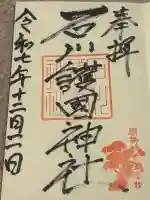 奉拝
石川護国神社
令和七年十二月二日